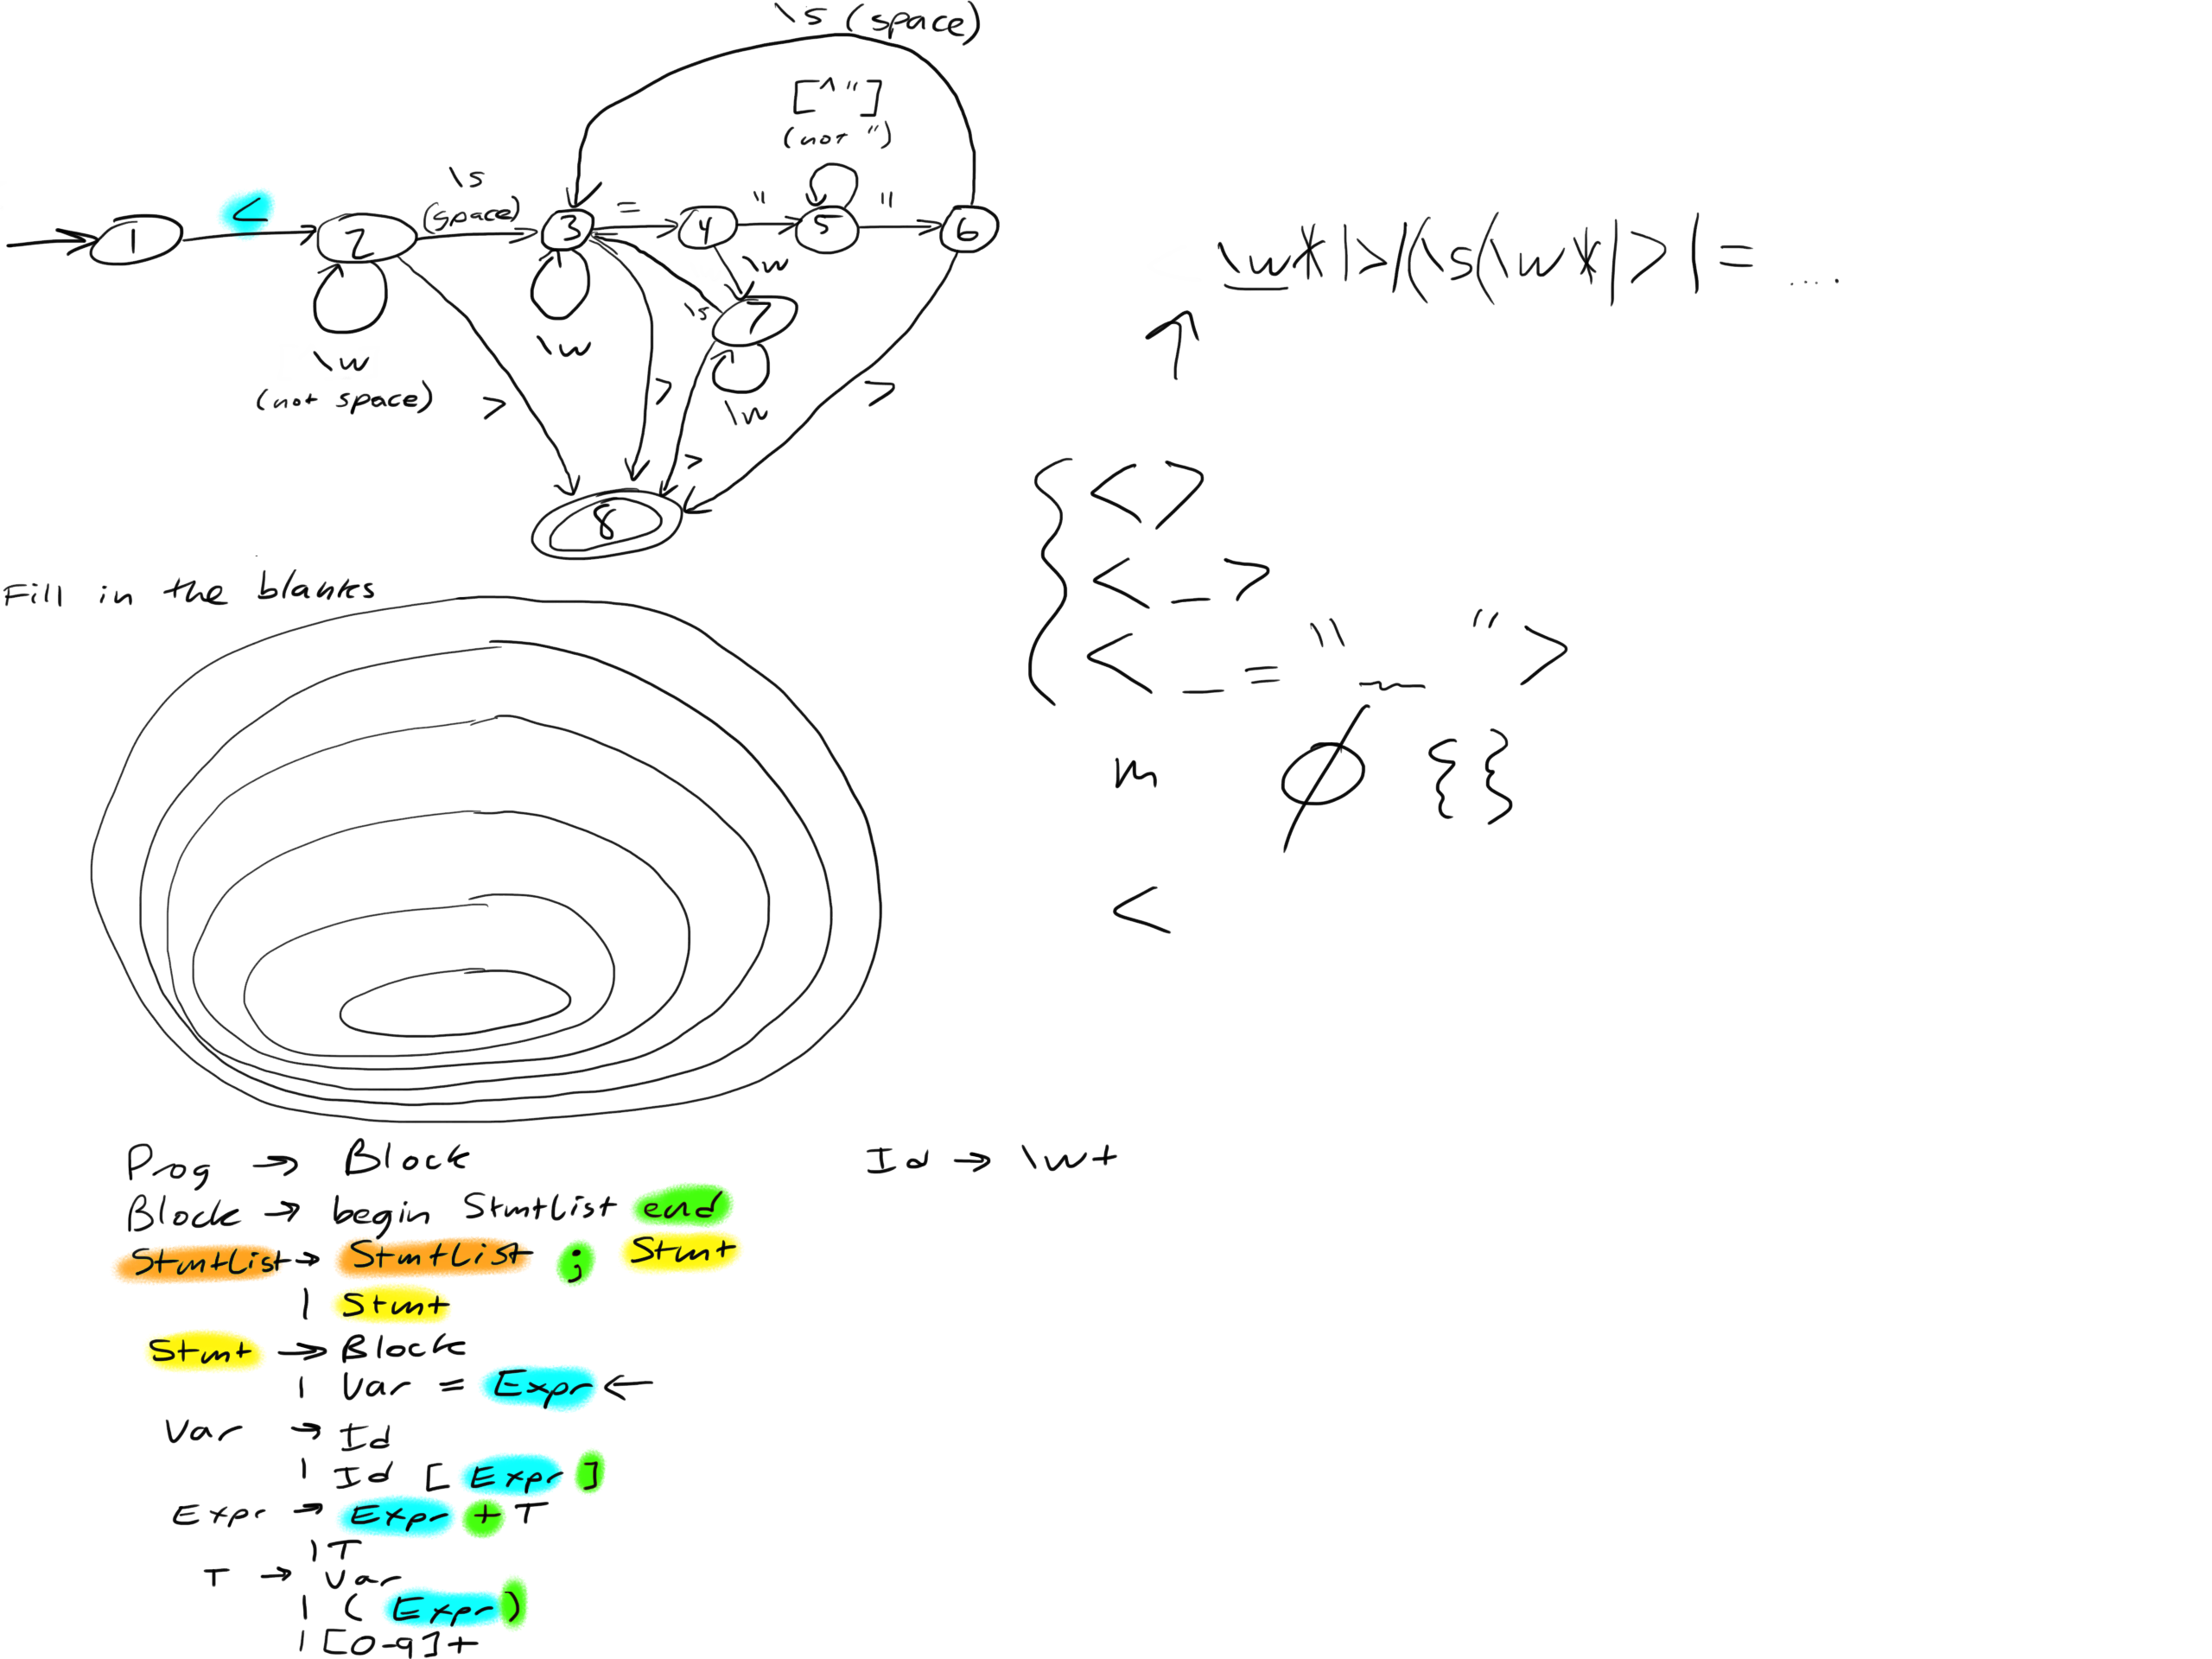 \s (space)
[^"]
(not ")
\s
(space)
<
=
"
"
1
2
3
4
5
6
\w
\s
7
\w
(not space)
\w
\w
>
>
>
>
8
\w*|>|(\s(\w*|>|= ....
<>
<_>
<_="_">
m ∅ {}
<
Fill in the blanks
Prog → Block
Id → \w+
Block → begin StmtList end
StmtList → StmtList ; Stmt
| Stmt
Stmt → Block
| Var = Expr ←
Var → Id
| Id [ Expr ]
Expr → Expr + T
| T
T → Var
| ( Expr )
| [0-9]+